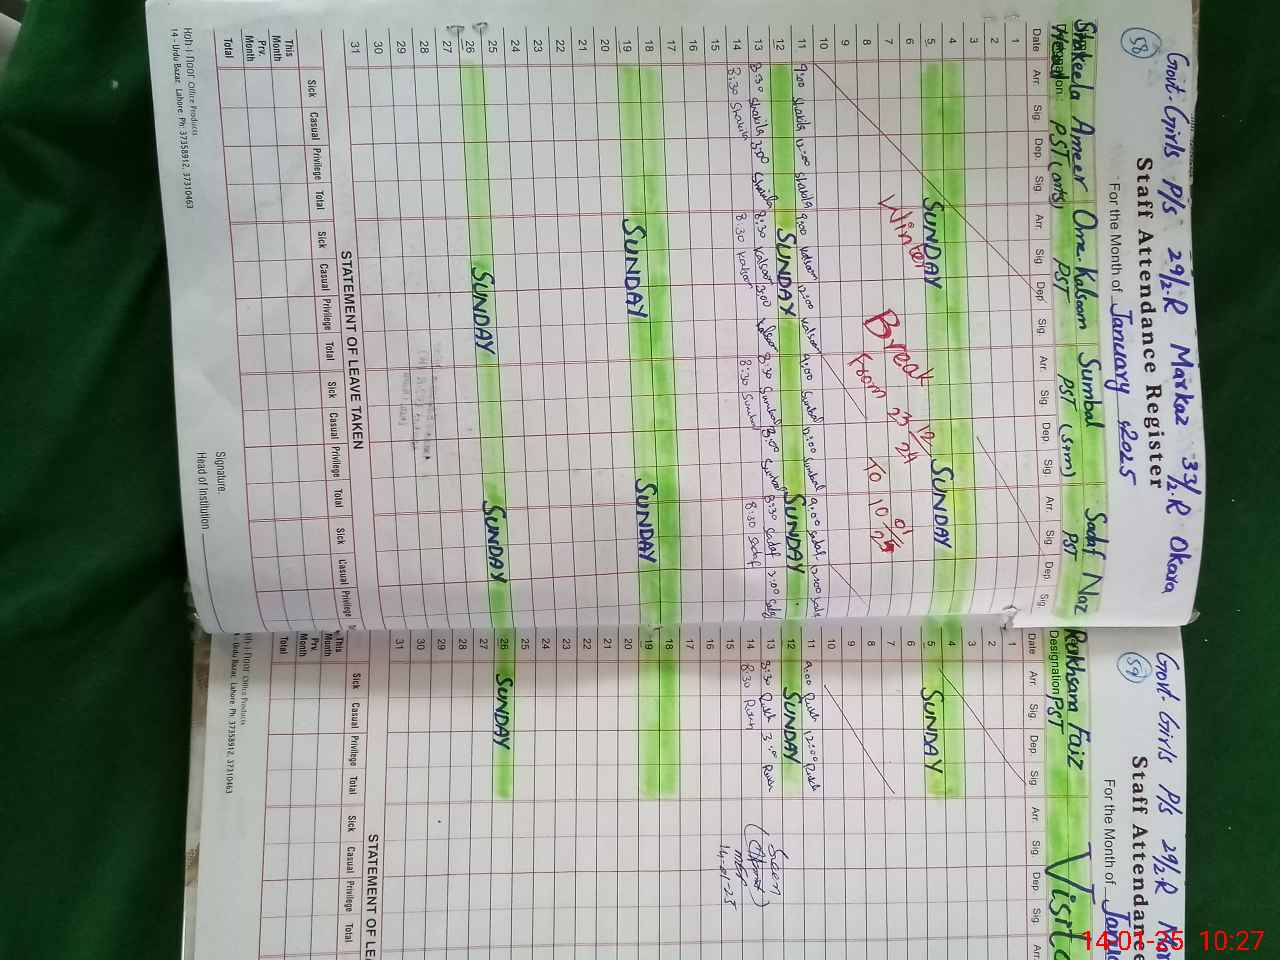 58
Govt. Girls P/s 29/2.R Markaz 33/2.R Okara
Staff Attendance Register
For the Month of January 2025
Shakeela Ameer Ome. Kalsoom Sumbal Sadaf Naz
PST (arts) PST PST (S+m) PST
Date Arr. Sig. Dep. Sig. Arr. Sig. Dep. Sig. Arr. Sig. Dep. Sig. Arr. Sig. Dep. Sig.
1
2
3
4
5 SUNDAY SUNDAY
6
7
8
9
10
Winter Break
From 23/12/24 To 10/01/25
11 9:00 Shakila 12:00 Shakila 9:00 Kalsoom 12:00 Kalsoom 9:00 Sumbal 12:00 Sumbal 9:00 Sadaf 12:00 Sadaf
12 SUNDAY SUNDAY
13 8:30 Shakila 3:00 Shakila 8:30 Kalsoom 3:00 Kalsoom 8:30 Sumbal 3:00 Sumbal 8:30 Sadaf 3:00 Sadaf
14 8:30 Shakila 8:30 Kalsoom 8:30 Sumbal 8:30 Sadaf
15
16
17
18
19 SUNDAY SUNDAY
20
21
22
23
24
25
26 SUNDAY SUNDAY
27
28
29
30
31
STATEMENT OF LEAVE TAKEN
Sick Casual Privilege Total Sick Casual Privilege Total Sick Casual Privilege Total Sick Casual Privilege
This Month
Prv. Month
Total
Signature.
Head of Institution
Hoh-i-Noor Office Products
14 - Urdu Bazar, Lahore Ph: 37358912, 37310463
59
Govt. Girls P/s 29/2.R
Staff Attendance
For the Month of
Rukhsana Faiz
Designation PST
Date Arr. Sig. Dep. Sig. Arr. Sig. Dep. Sig. Arr.
1
2
3
4
5 SUNDAY
6
7
8
9
10
11 9:00 Rukh 12:00 Rukh
12 SUNDAY
13 8:30 Rukh 3:00 Rukh
14 8:30 Rukh
15
16
17
18
19
20
21
22
23
24
25
26 SUNDAY
27
28
29
30
31
Seen
14-01-25
STATEMENT OF LEA
Sick Casual Privilege Total Sick Casual Privilege Total
This Month
Prv. Month
Total
h-i-Noor Office Products
Urdu Bazar, Lahore Ph: 37358912, 37310463
14-01-25 10:27